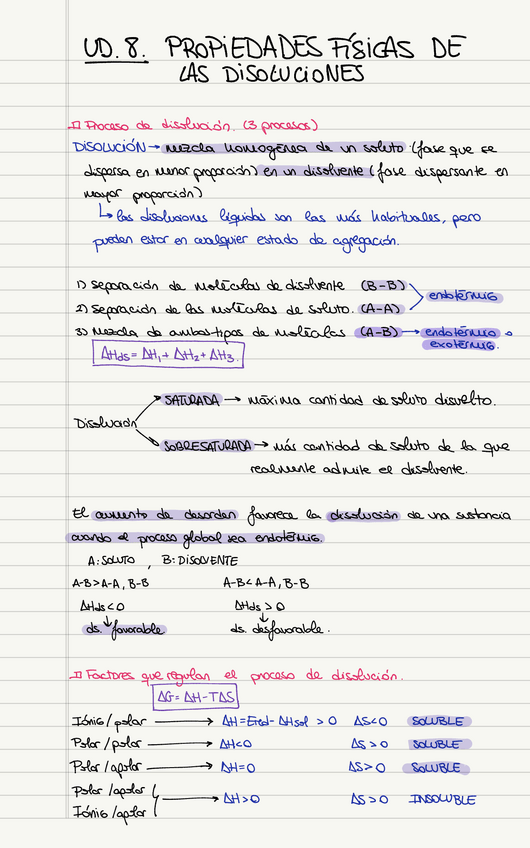 UD. 8. PROPIEDADES FÍSICAS DE
LAS DISOLUCIONES
Proceso de disolución. (3 procesos)
DISOLUCIÓN → mezcla homogénea de un soluto (fase que se
dispersa en menor proporción) en un disolvente (fase dispersante en
mayor proporción)
↳ las disoluciones líquidas son las más habituales, pero
pueden estar en cualquier estado de agregación.
1) Separación de moléculas de disolvente (B-B)
endotérmico
2) Separación de las moléculas de soluto. (A-A)
3) Mezcla de ambos tipos de moléculas (A-B) → endotérmico o
exotérmico.
ΔHds = ΔH1 + ΔH2 + ΔH3.
SATURADA → máxima cantidad de soluto disuelto.
Disolución
SOBRESATURADA → más cantidad de soluto de la que
realmente admite el disolvente.
El aumento de desorden favorece la disolución de una sustancia
cuando el proceso global sea endotérmico.
A: SOLUTO , B: DISOLVENTE
A-B > A-A, B-B A-B < A-A, B-B
ΔHds < 0 ΔHds > 0
ds. favorable ds. desfavorable.
Factores que regulan el proceso de disolución.
ΔG = ΔH - TΔS
Iónico / polar → ΔH = Ered - ΔHsol > 0 ΔS < 0 SOLUBLE
Polar / polar → ΔH < 0 ΔS > 0 SOLUBLE
Polar / apolar → ΔH = 0 ΔS > 0 SOLUBLE
Polar / apolar
→ ΔH > 0 ΔS > 0 INSOLUBLE
Iónico / apolar